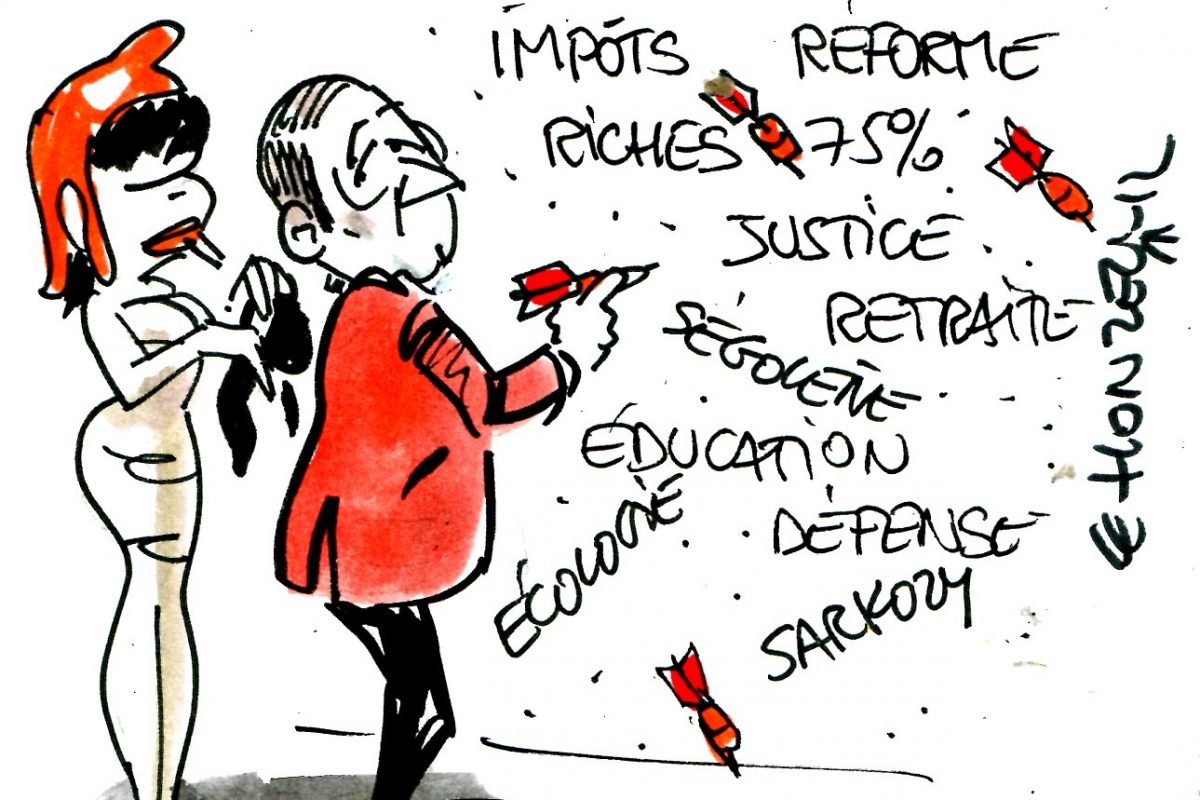 IMPÓTS RÉFORME
RICHES 75%
JUSTICE
RETRAITE
SÉGOLÈNE
ÉDUCATION
ÉCOLOGIE
DÉFENSE
SARKOZY